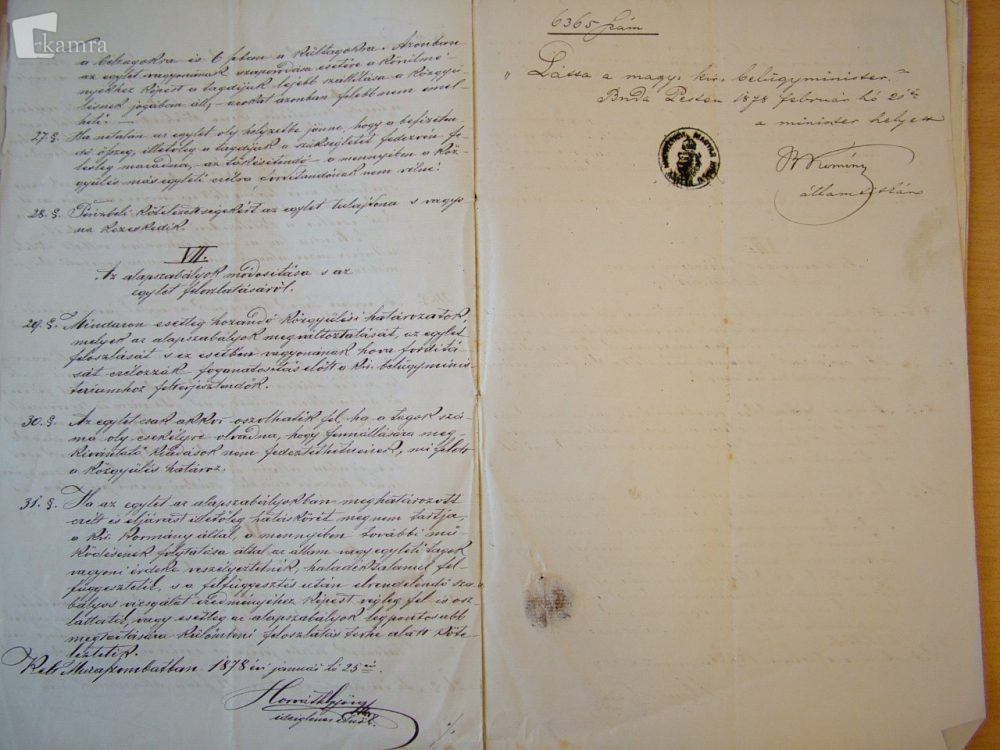 kamra
a beltagokra és 6 frtban a kültagokra. Azonban
az egylet vagyonának szaporodása esetére a körülmé-
nyekhez képest a tagdíjak lejebb szállítása a közgyü-
lésnek jogában áll, – azokat azonban felebb nem emel-
heti. –
27. §. Ha netalán az egylet oly helyzetbe jönne, hogy a befizeten-
dő összeg, illetőleg a tagdíjak a szükségletet fedezvén fe-
lösleg maradna, – az tőkésítendő – a mennyiben a köz-
gyülés más egyleti czélra fordítandónak nem vélné.
28. §. Pénzbeli kötelezettségekért az egylet tulajdona s vagyo-
na kezeskedik.
VII.
Az alapszabályok módosítása s az
egylet feloszlatásáról.
29. §. Mindazon esetleg hozandó közgyülési határozatok,
melyek az alapszabályok megváltoztatását, az egylet
feloszlását s ez esetben vagyonának hova fordítá-
sát czélozzák – foganatosítás előtt a kir. belügyminis-
teriumhoz felterjesztendők.
30. §. Az egylet csak akkor oszolhatik fel, ha a tagok szá-
ma oly csekélyre olvadna, hogy fennállására meg-
kivántató kiadások nem fedeztethetnének, mi felett
a közgyülés határoz.
31. §. Ha az egylet az alapszabályokban meghatározott
czélt és eljárást illetőleg hatáskörét meg nem tartja,
a kir. kormány által, a mennyiben további mü-
ködésének folytatása által az állam vagy egyleti tagok
vagyoni érdeke veszélyeztetnék, haladéktalanul fel-
függesztetik, s a felfüggesztés után elrendelendő sza-
bályos vizsgálat eredményéhez képest végleg fel is osz-
lattatik, vagy esetleg az alapszabályok legpontosabb
megtartására különbeni feloszlatás terhe alatt köte-
leztetik.
Kelt Muraszombatban 1878 évi január hó 25 én.
Horváth György
ideiglenes elnök.
./.
6365 szám
„Látta a magy. kir. belügyminister."
Buda Pesten 1878 február hó 21én
a minister helyett
államtitkár